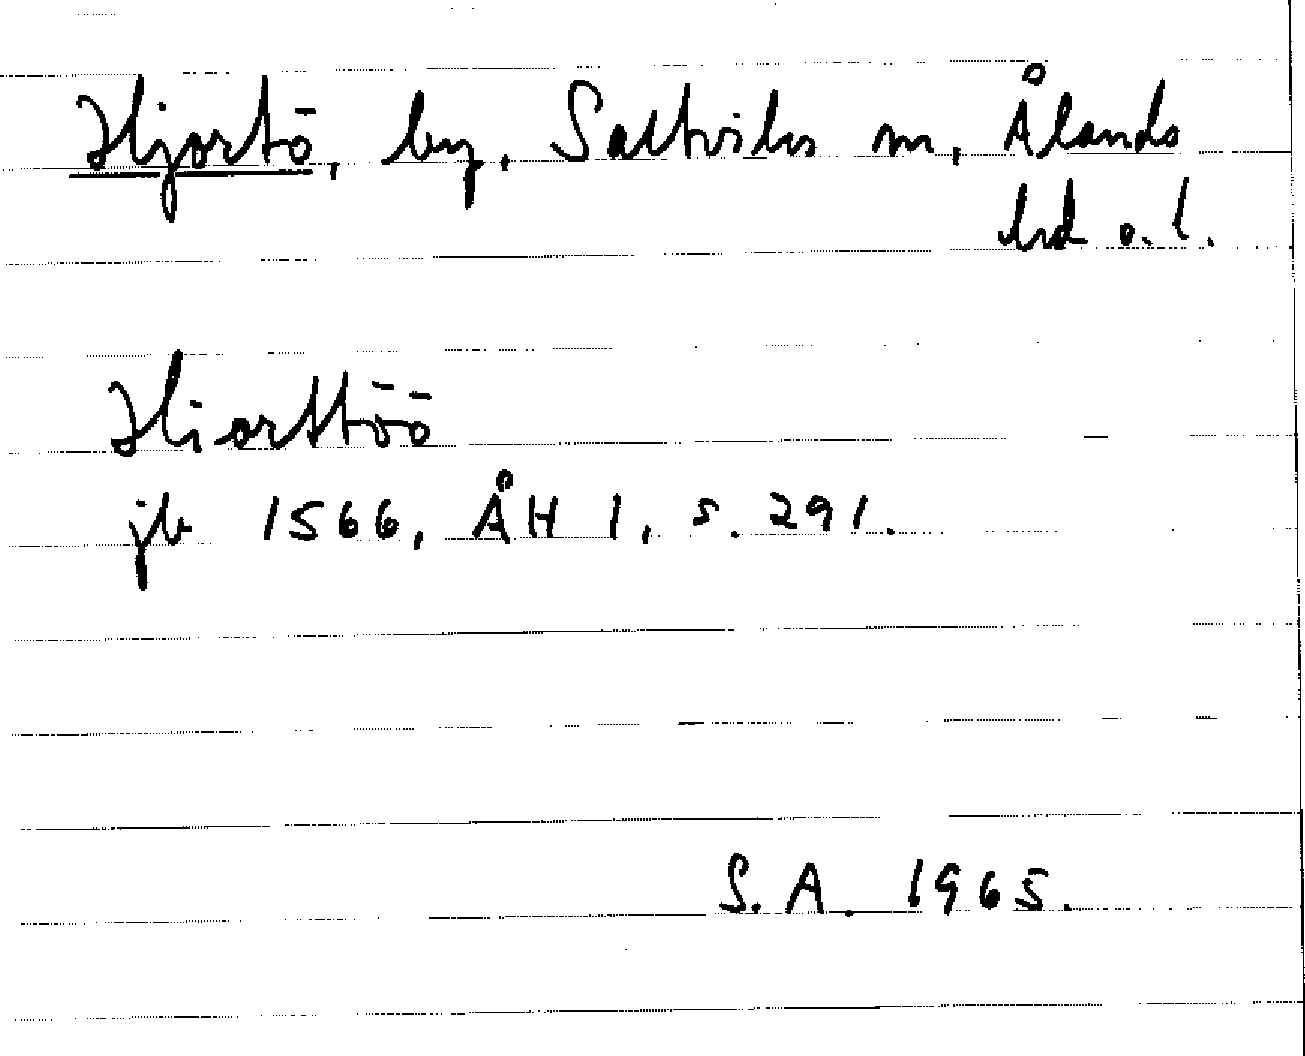 Hjortö, by, Saltviks sn, Ålands
hd o. l.
Hiorttöö
jb 1566, ÅH 1, s. 291.
S.A. 1965.